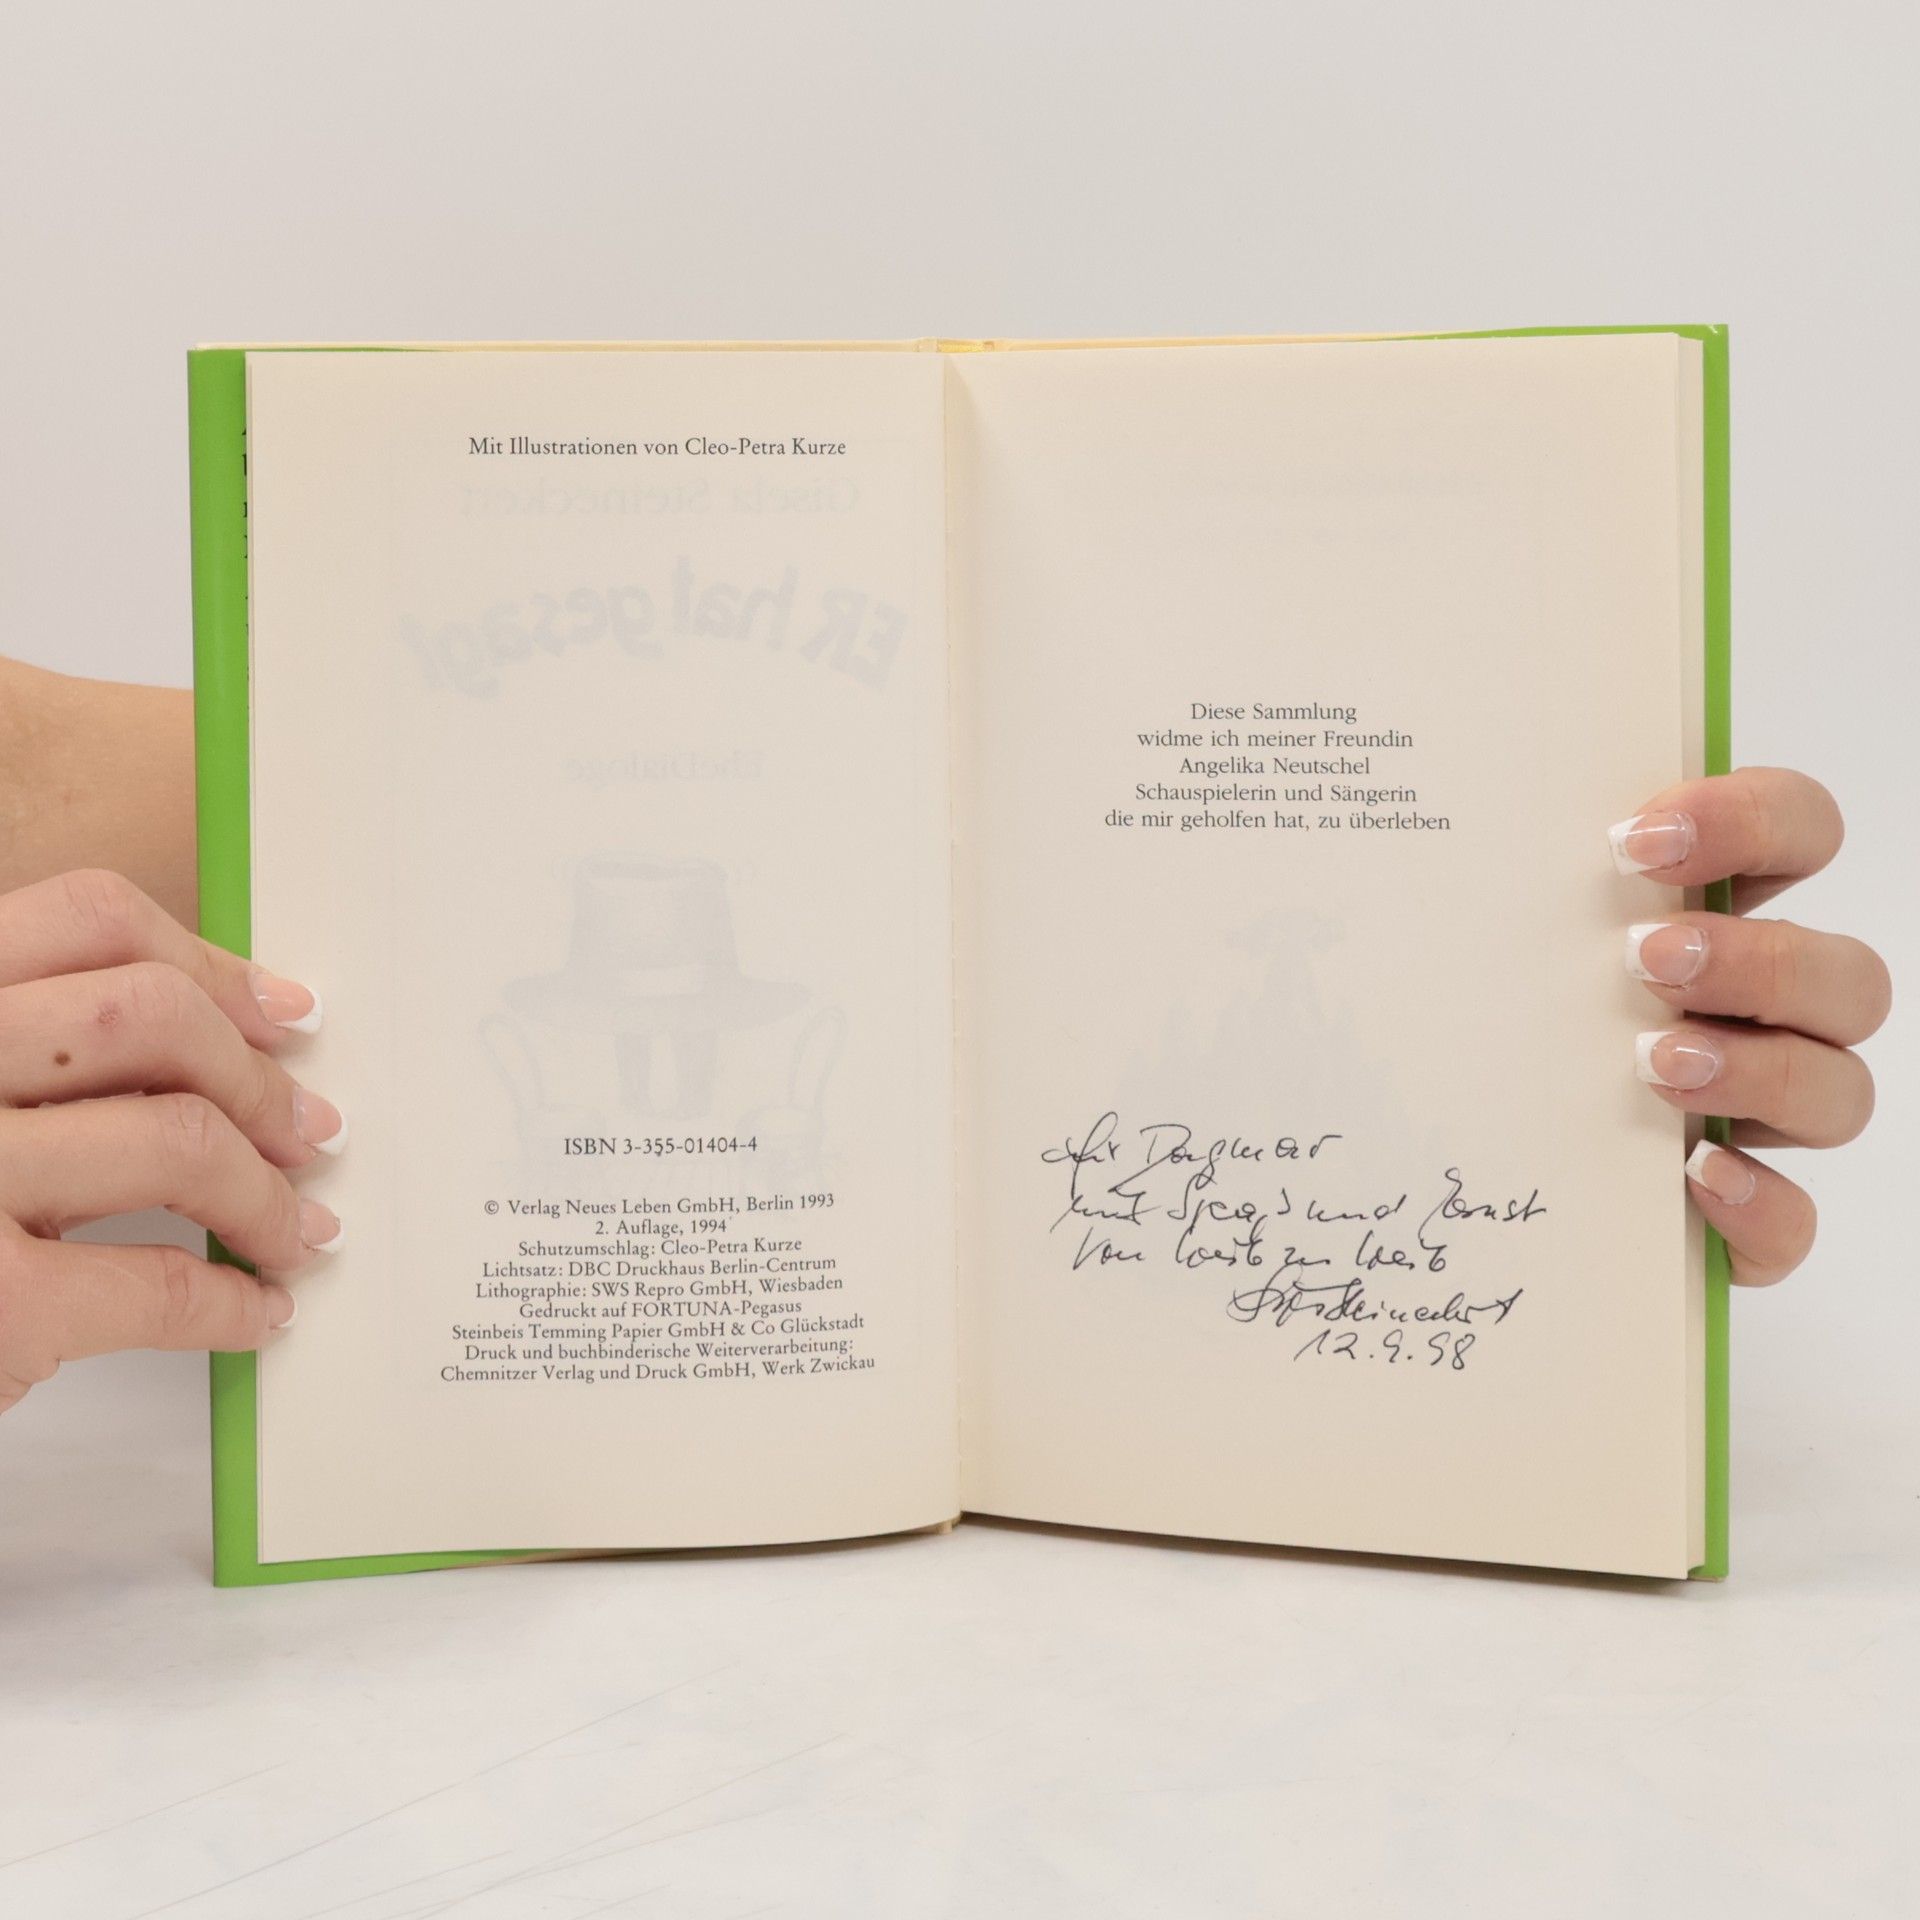 Mit Illustrationen von Cleo-Petra Kurze
Gisela Steineckert
ER hat gesagt
EheDialoge
ISBN 3-355-01404-4
© Verlag Neues Leben GmbH, Berlin 1993
2. Auflage, 1994
Schutzumschlag: Cleo-Petra Kurze
Lichtsatz: DBC Druckhaus Berlin-Centrum
Lithographie: SWS Repro GmbH, Wiesbaden
Gedruckt auf FORTUNA-Pegasus
Steinbeis Temming Papier GmbH & Co Glückstadt
Druck und buchbinderische Weiterverarbeitung:
Chemnitzer Verlag und Druck GmbH, Werk Zwickau
Diese Sammlung
widme ich meiner Freundin
Angelika Neutschel
Schauspielerin und Sängerin
die mir geholfen hat, zu überleben
für Dagmar
mit Spaß und Ernst
von Weib zu Weib
Steineckert
12.9.98